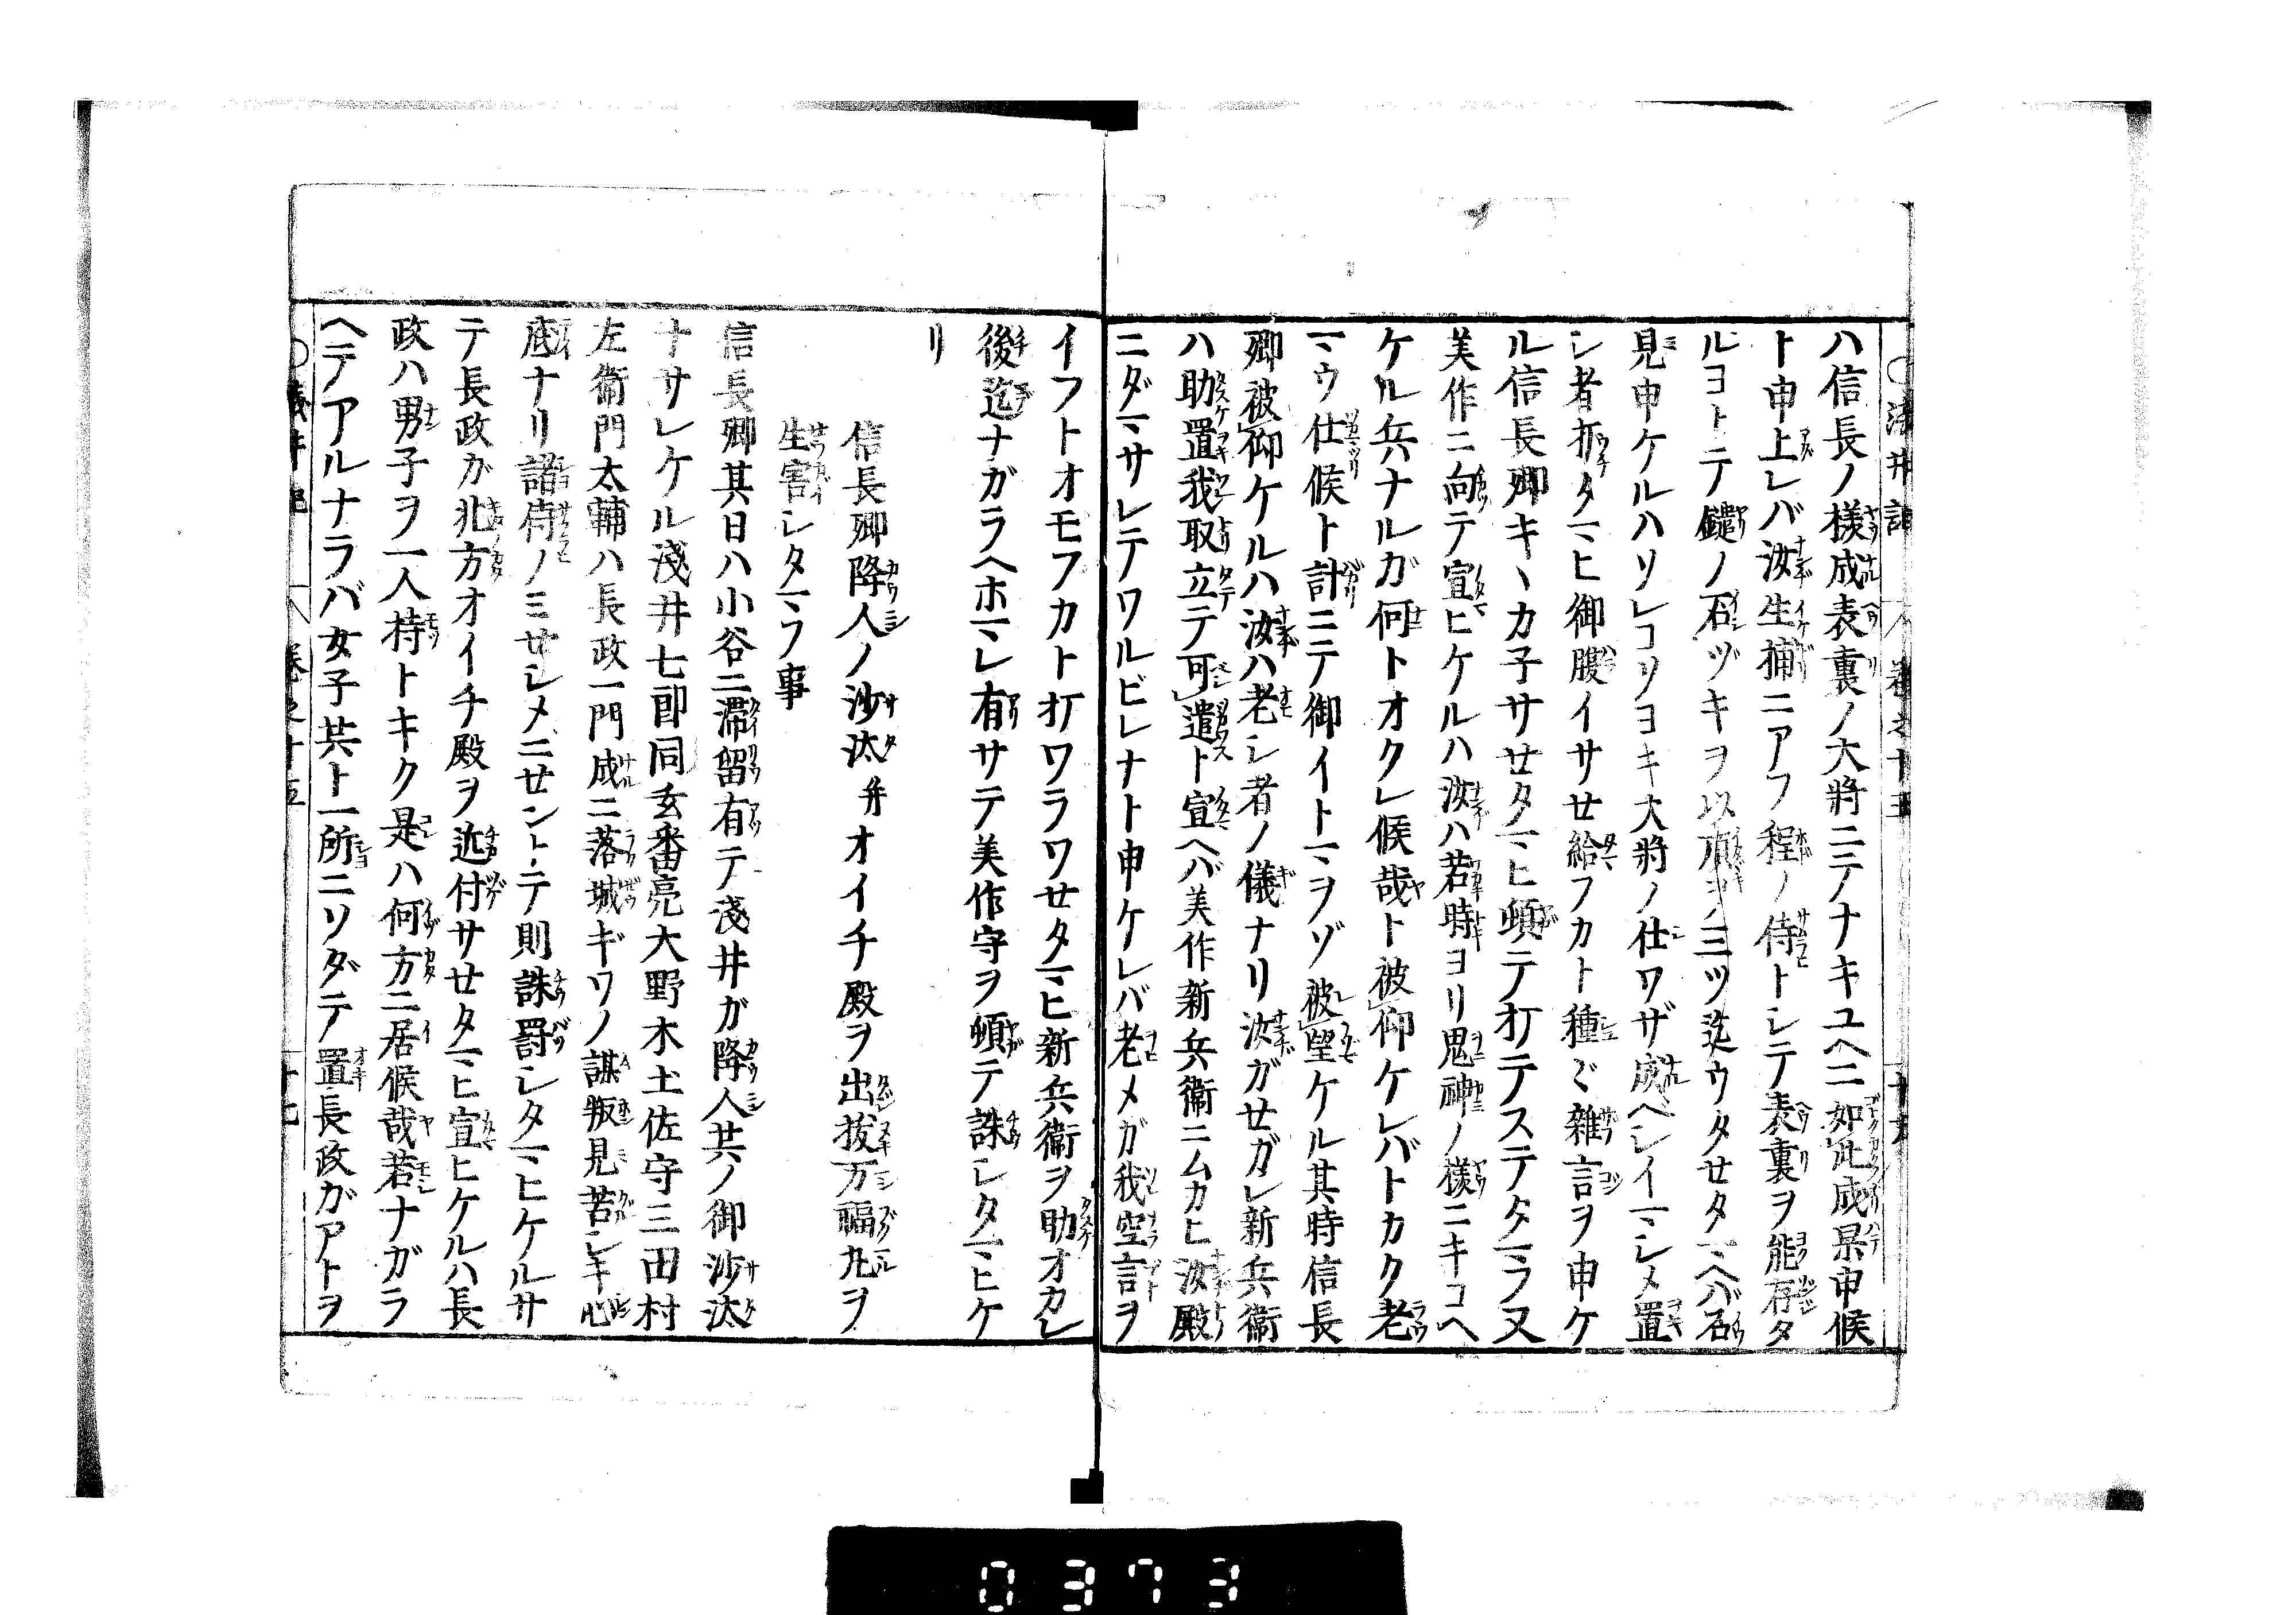 ハ信長ノ様成表裏ノ大將ニテノナキユヘニ如此成果申候
ト申上レバ汝生捕ニアフ程ノ侍トシテ表裏ヲ能存タ
ルヨトテ鑓ノ石ヅキヲ以頂ヲ三ツ迄ウタセタマヘバ石
見申ケルハソレコソヨキ大將ノ仕ワザ成ベシイマシメ置
シ者折タマヒ御腹イサセ給フカト種〻雑言ヲ申ケ
ル信長卿キヽカ子サセタマヒ頓テ打テステタマフ又
美作ニ向テ宣ヒケルハ汝ハ若時ヨリ鬼神ノ様ニキコヘ
ケル兵ナルガ何トオクレ候哉ト被仰ケレバトカク老
マウ仕候ト計ニテ御イトマヲゾ被望ケル其時信長
卿被仰ケルハ汝ハ老シ者ノ儀ナリ汝ガセガレ新兵衛
ハ助置我取立テ可遣ト宣ヘバ美作新兵衛ニムカヒ汝殿
ニダマサレテワルビレナト申ケレバ老メガ我空言ヲ
イフトオモフカト打ワラワセタマヒ新兵衛ヲ助オカレ
後迄ナガラヘホマレ有サテ美作守ヲ頓テ誅シタマヒケ
リ
信長卿降人ノ沙汰并オイチ殿ヲ出抜万福丸ヲ
生害シタマフ事
信長卿其日ハ小谷ニ滞留有テ淺井ガ降人共ノ御沙汰
ナサレケル淺井七郎同玄番亮大野木土佐守三田村
左衛門太輔ハ長政一門成ニ落城ギワノ謀叛見苦シキ心
底ナリ諸侍ノミセシメニセントテ則誅罰シタマヒケルサ
テ長政カ北方オイチ殿ヲ近付サセタマヒ宣ヒケルハ長
政ハ男子ヲ一人持トキク是ハ何方ニ居候哉若ナガラ
ヘテアルナラバ女子共ト一所ニソダテ置長政ガアトヲ
0373